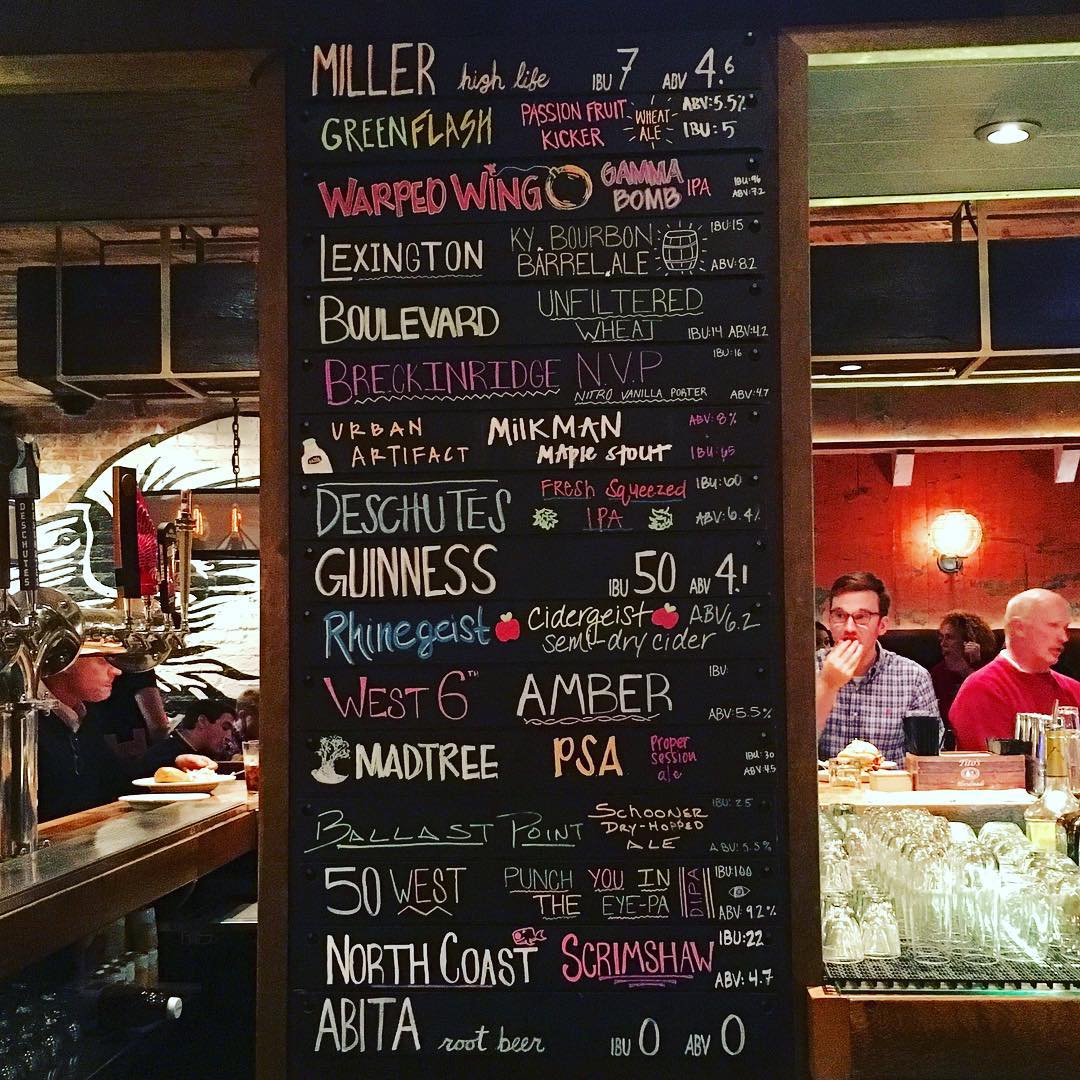 MILLER high life IBU 7 ABV 4.6
GREEN FLASH PASSION FRUIT KICKER WHEAT ALE ABV:5.5% IBU:5
WARPED WING GAMMA BOMB IPA IBU:96 ABV:7.2
LEXINGTON KY. BOURBON BARREL ALE IBU:15 ABV:8.2
BOULEVARD UNFILTERED WHEAT IBU:14 ABV:4.2
BRECKINRIDGE N.V.P NITRO VANILLA PORTER IBU:16 ABV:4.7
URBAN ARTIFACT MILKMAN MAPLE STOUT ABV:8% IBU:65
DESCHUTES FRESH SQUEEZED IPA IBU:60 ABV:6.4%
GUINNESS IBU 50 ABV 4.1
Rhinegeist Cidergeist semi-dry cider ABV 6.2
WEST 6TH AMBER IBU: ABV:5.5%
MADTREE PSA Proper session ale IBU:30 ABV:4.5
BALLAST POINT SCHOONER DRY-HOPPED ALE IBU:25 ABU:5.5%
50 WEST PUNCH YOU IN THE EYE-PA DIIPA IBU:100 ABV:9.2%
NORTH COAST SCRIMSHAW IBU:22 ABV:4.7
ABITA root beer IBU 0 ABV 0
DESCHUTES
Tito's